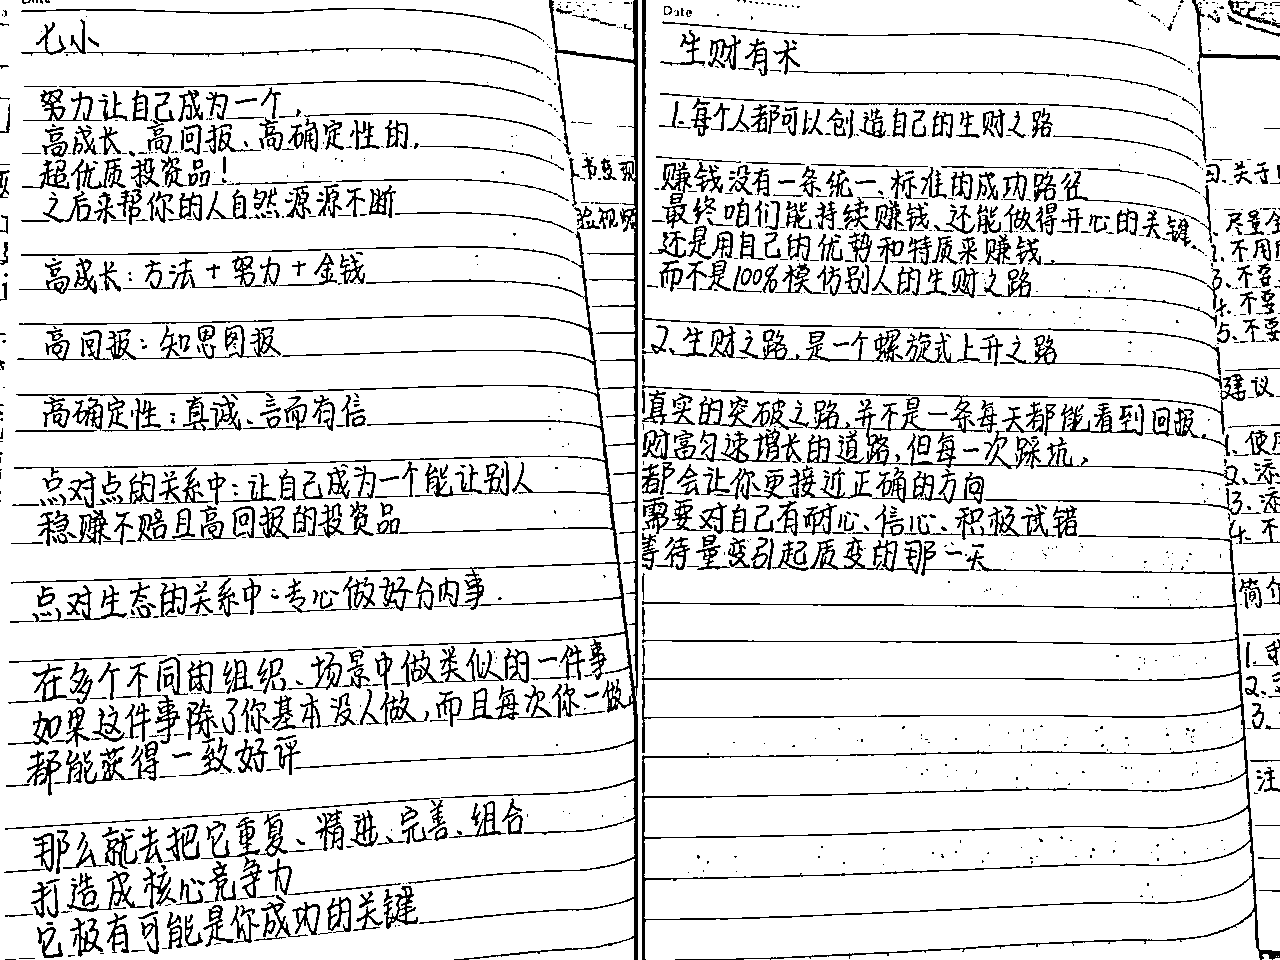 Date
七小
努力让自己成为一个，
高成长、高回报、高确定性的，
超优质投资品！
之后来帮你的人自然源源不断
高成长：方法＋努力＋金钱
高回报：知恩图报
高确定性：真诚、言而有信
点对点的关系中：让自己成为一个能让别人
稳赚不赔且高回报的投资品
点对生态的关系中：专心做好分内事．
在多个不同的组织、场景中做类似的一件事
如果这件事除了你基本没人做，而且每次你一做，
都能获得一致好评
那么就去把它重复、精进、完善、组合
打造成核心竞争力
它极有可能是你成功的关键
Date
生财有术
1.每个人都可以创造自己的生财之路
赚钱没有一条统一、标准的成功路径
最终咱们能持续赚钱、还能做得开心的关键，
还是用自己的优势和特质来赚钱，
而不是100%模仿别人的生财之路
2、生财之路，是一个螺旋式上升之路
真实的突破之路，并不是一条每天都能看到回报，
财富匀速增长的道路，但每一次踩坑，
都会让你更接近正确的方向
需要对自己有耐心、信心、积极试错
等待量变引起质变的那一天
四、关于
尽量
不用
3、不要
4、不要
5、不要
建议
1、使用
2、添
3、添
4、不
简介
1、我
2、
3、
注